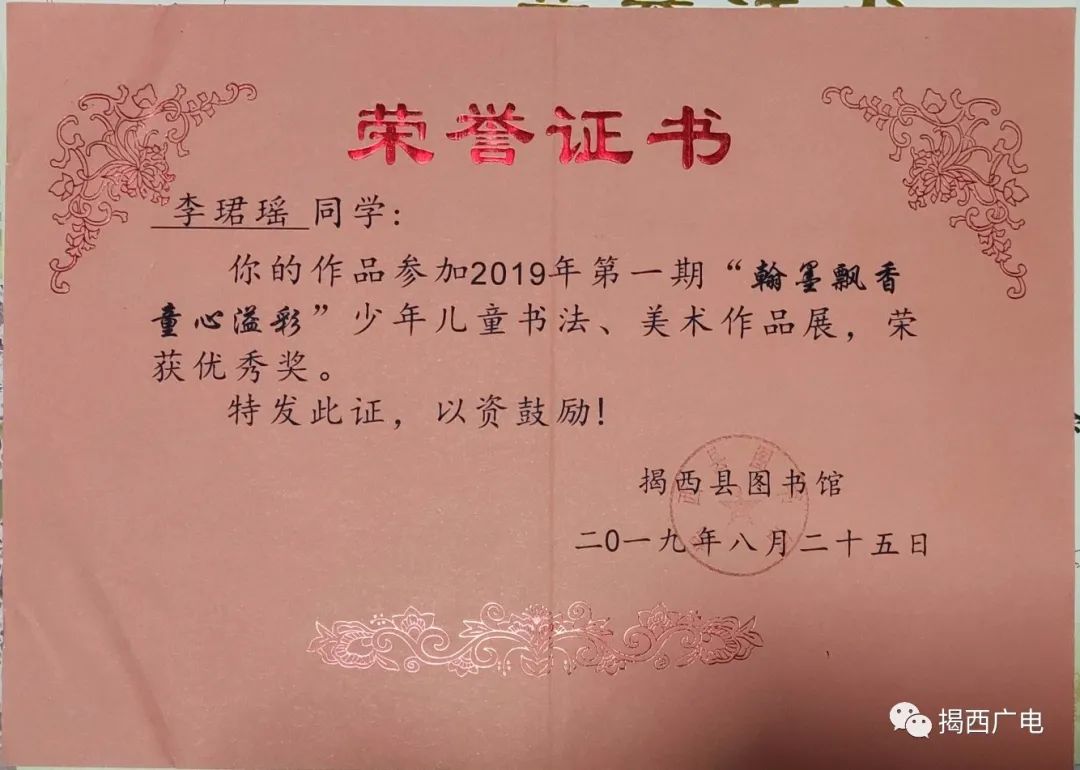 荣誉证书
李珺瑶 同学:
你的作品参加2019年第一期“翰墨飘香
童心溢彩”少年儿童书法、美术作品展，荣
获优秀奖。
特发此证，以资鼓励!
揭西县图书馆
二0一九年八月二十五日
揭西广电